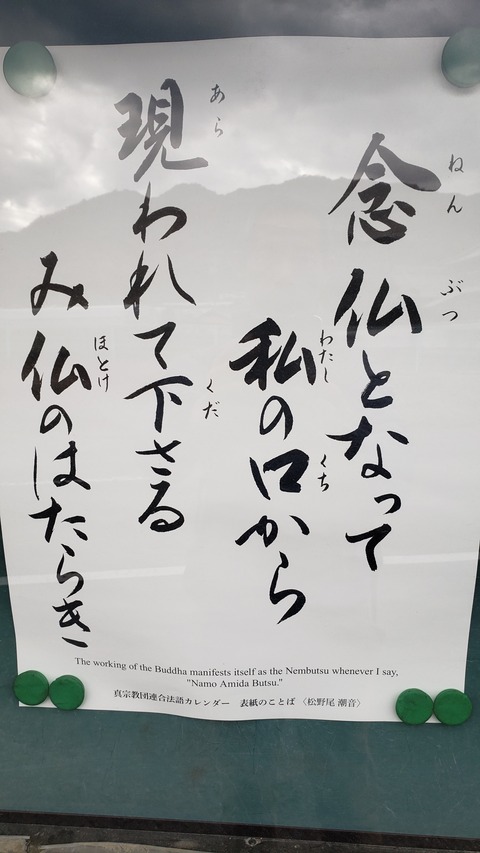 念仏となって
ねんぶつ
私の口から
わたしくち
現われて下さる
あらくだ
み仏のはたらき
ほとけ
The working of the Buddha manifests itself as the Nembutsu whenever I say,
"Namo Amida Butsu."
真宗教団連合法語カレンダー　表紙のことば〈松野尾 潮音〉